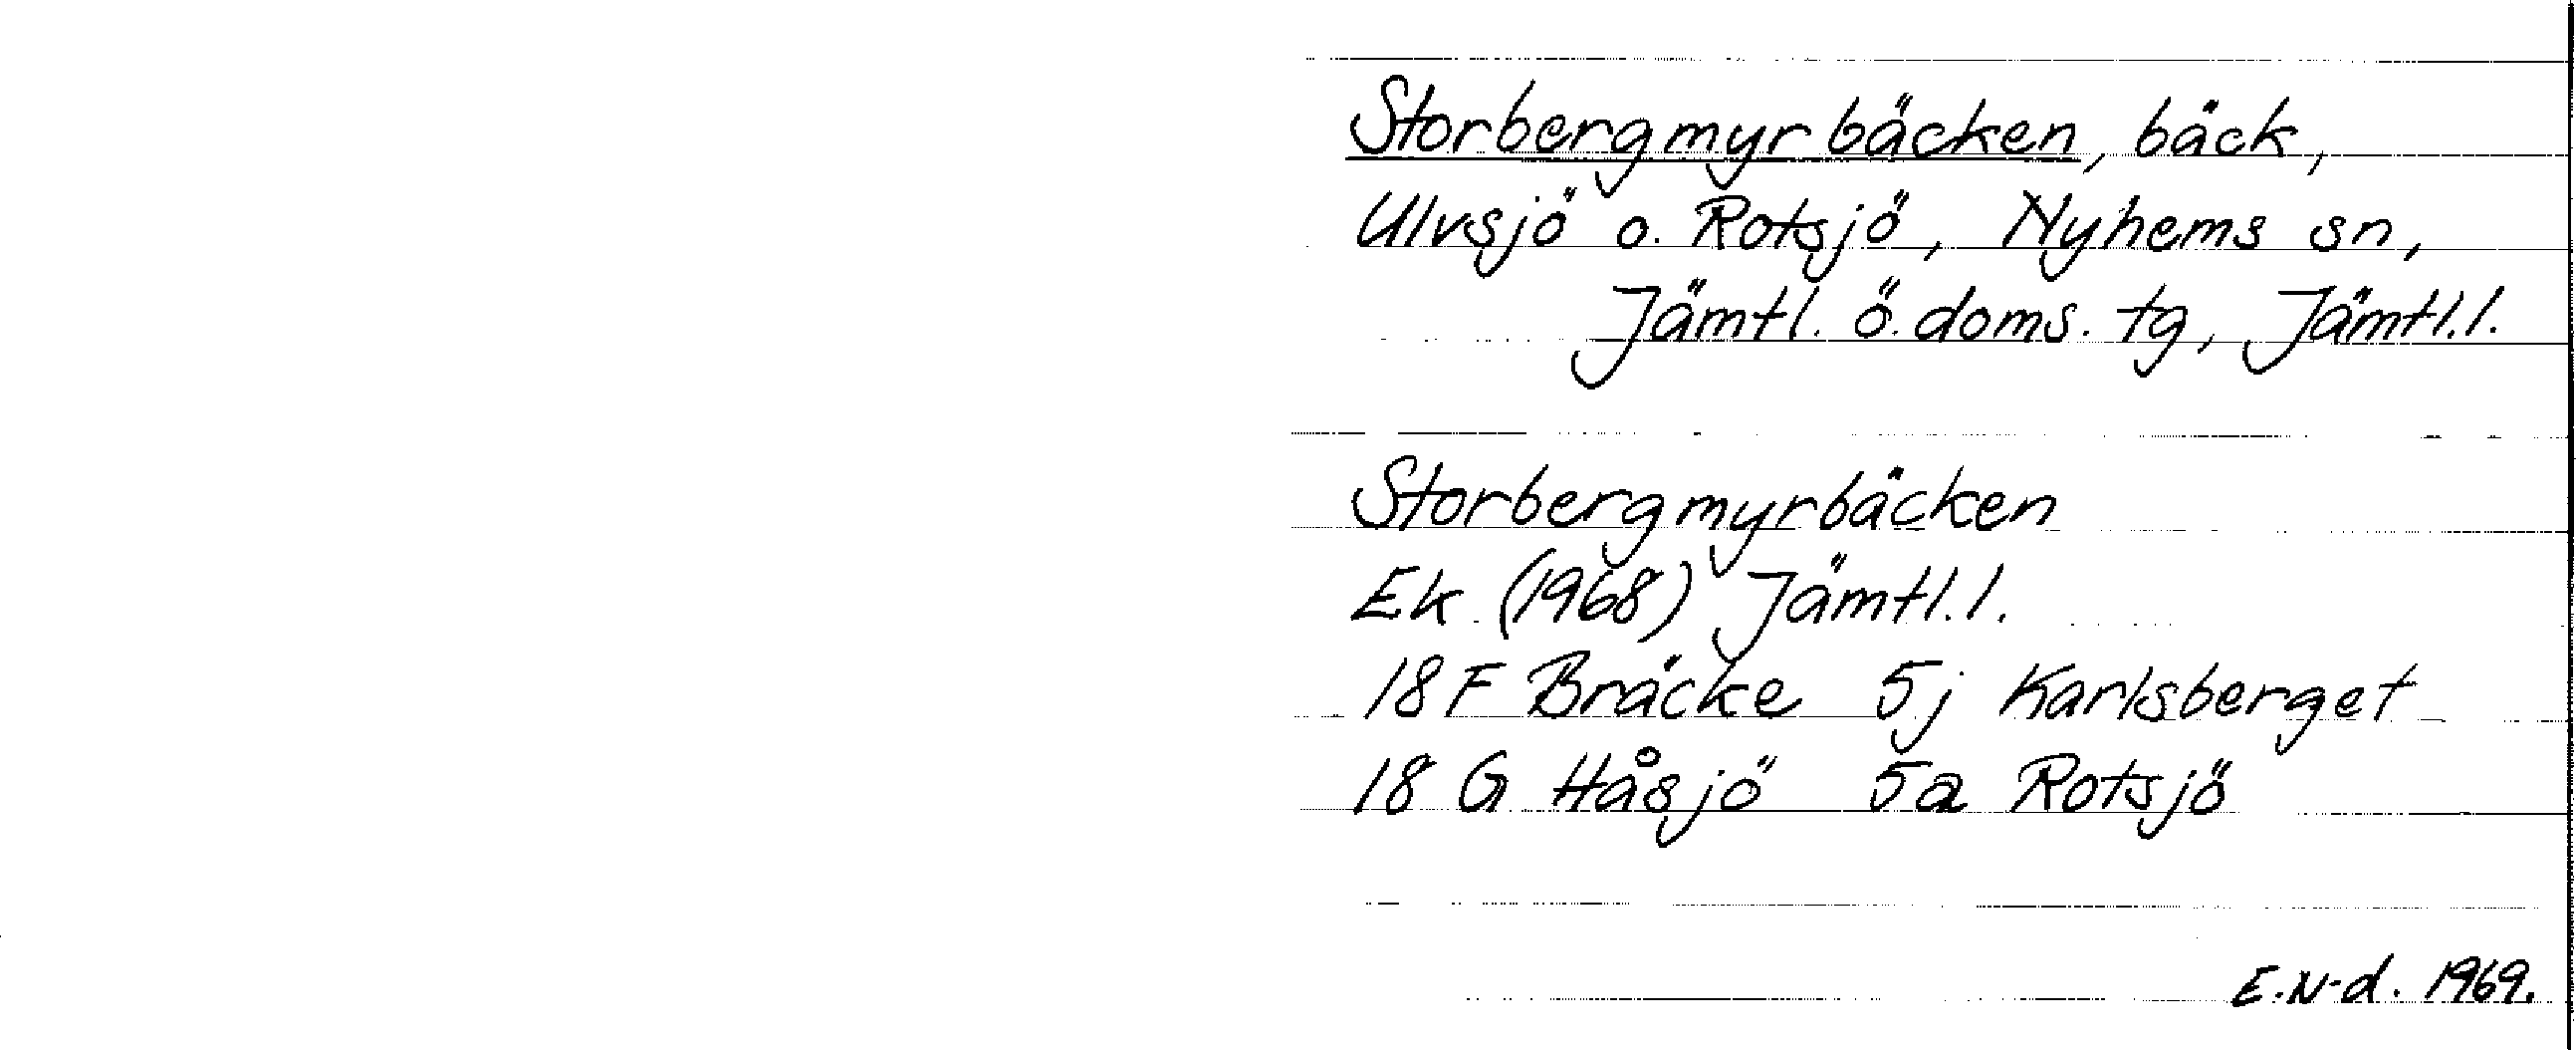 Storbergmyrbäcken, bäck,
Ulvsjö o. Rotsjö, Nyhems sn,
Jämtl. ö. doms. tg, Jämtl.l.
Storbergmyrbäcken
Ek. (1968) Jämtl.l.
18 F Bräcke 5j Karlsberget
18 G Håsjö 5a Rotsjö
E.N-d. 1969.